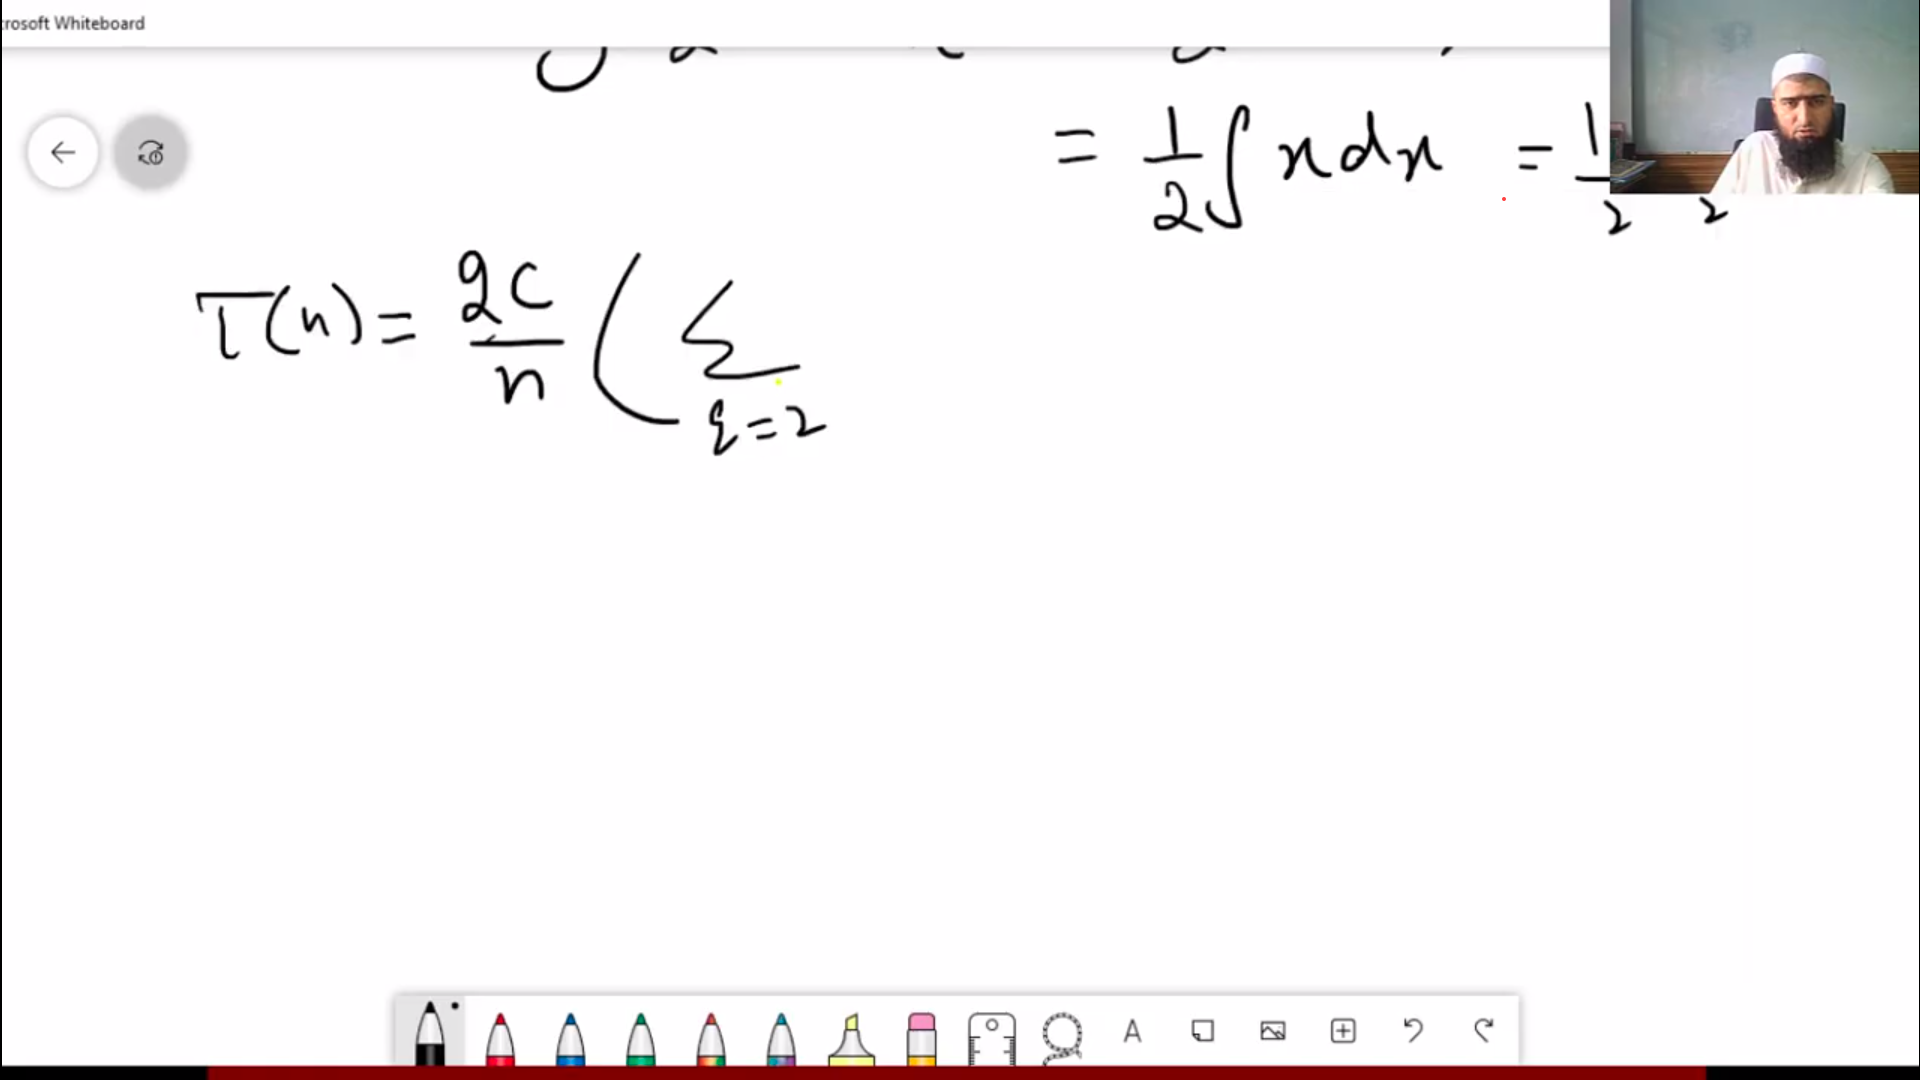 crosoft Whiteboard
= 1/2 ∫ x dx = 1/2 2
T(n) = 2c/n ( Σ
q=2
A